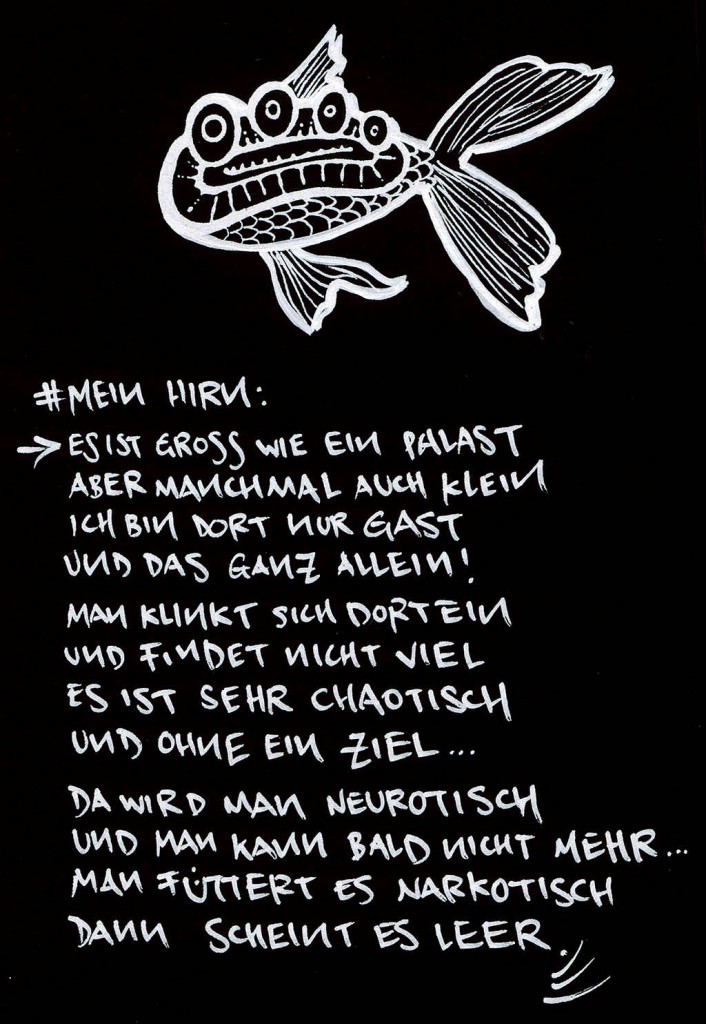 #MEIN HIRN:
→ES IST GROSS WIE EIN PALAST
ABER MANCHMAL AUCH KLEIN
ICH BIN DORT NUR GAST
UND DAS GANZ ALLEIN!
MAN KLINKT SICH DORT EIN
UND FINDET NICHT VIEL
ES IST SEHR CHAOTISCH
UND OHNE EIN ZIEL...
DA WIRD MAN NEUROTISCH
UND MAN KANN BALD NICHT MEHR...
MAN FÜTTERT ES NARKOTISCH
DANN SCHEINT ES LEER.